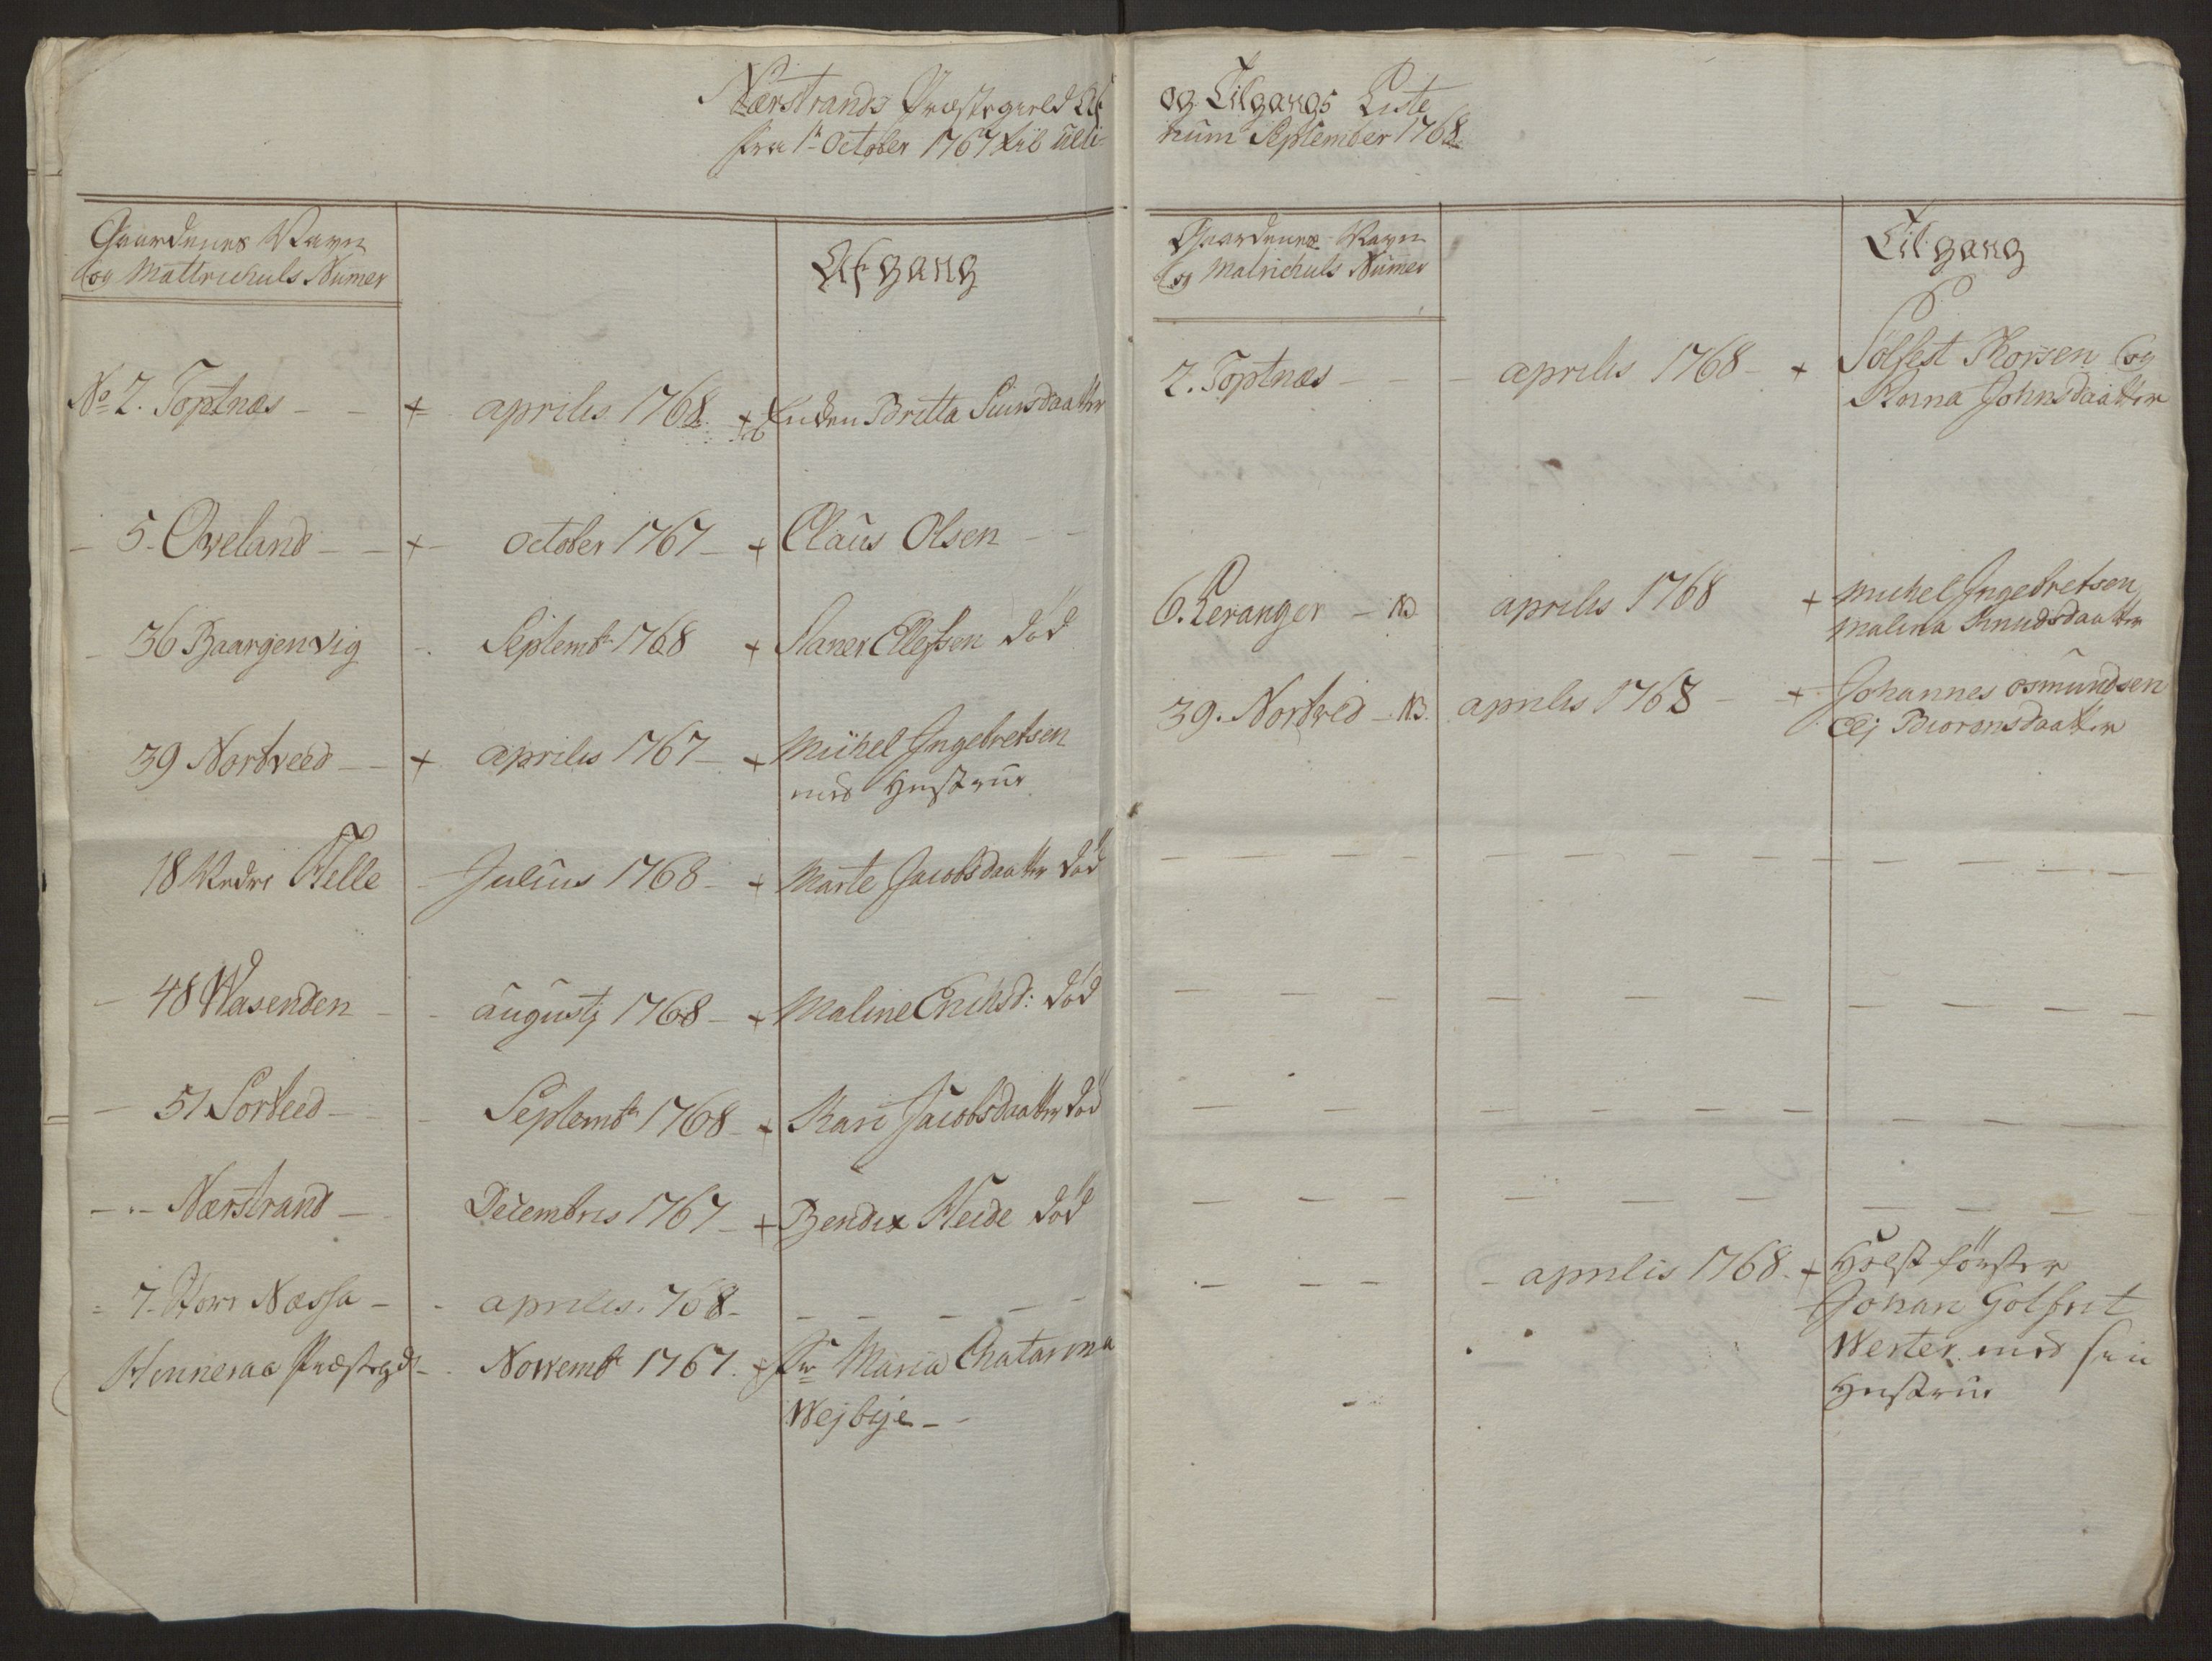 Nærstrands Præstegield Af
fra 1te October 1767 til ulti-
Gaardenes Navn
og Mattrichuls Numer
Afgang
No 2. Toptnæs - - + aprilis 1768. + Enken Britta Siursdaatter
- 5. Opeland - - + - October 1767 - + Claus Olsen - -
- 36 Baargenvig - . Septembr 1768 + Slaner Ellefsen død
39 Nortveed - - + aprilis 1767 - + Michel Ingebretsen
med Hustrue
18 Nedre Helle - Julius 1768 - + Marte Jacobsdaatter død
- 48 Wasenden - - augusti 1768 - + Maline Erichsd: død
- 51 Sorteed - - Septembr 1768 - + Kari Jacobsdaatter død
- .. - Nærstrand - Decembris 1767 - + Bendix Heide død
= 7. Næssa - - aprilis. 768 - - - - - -
Hinneraa Præstegd - . Novembr 1767. + Maria Chatarina
Wejbye - -
og Tilgangs Liste
mum September 1768.
Gaardenes Navn
og Matrichuls Numer
Tilgang
2. Toptnæs - - - aprilis 1768 - + Solfest Korsen og
Anna Johnsdaatter
6. Leranger - NB aprilis 1768 + Michel Ingebretsen
Malina Knudsdaatter
39. Nortved - NB. aprilis 1768 - + Johannes Osmundsen
Elj Biørensdaatter
- - - - aprilis 1768. + Holtzförster
Johan Gotfrit
Werter med sin
Hustrue